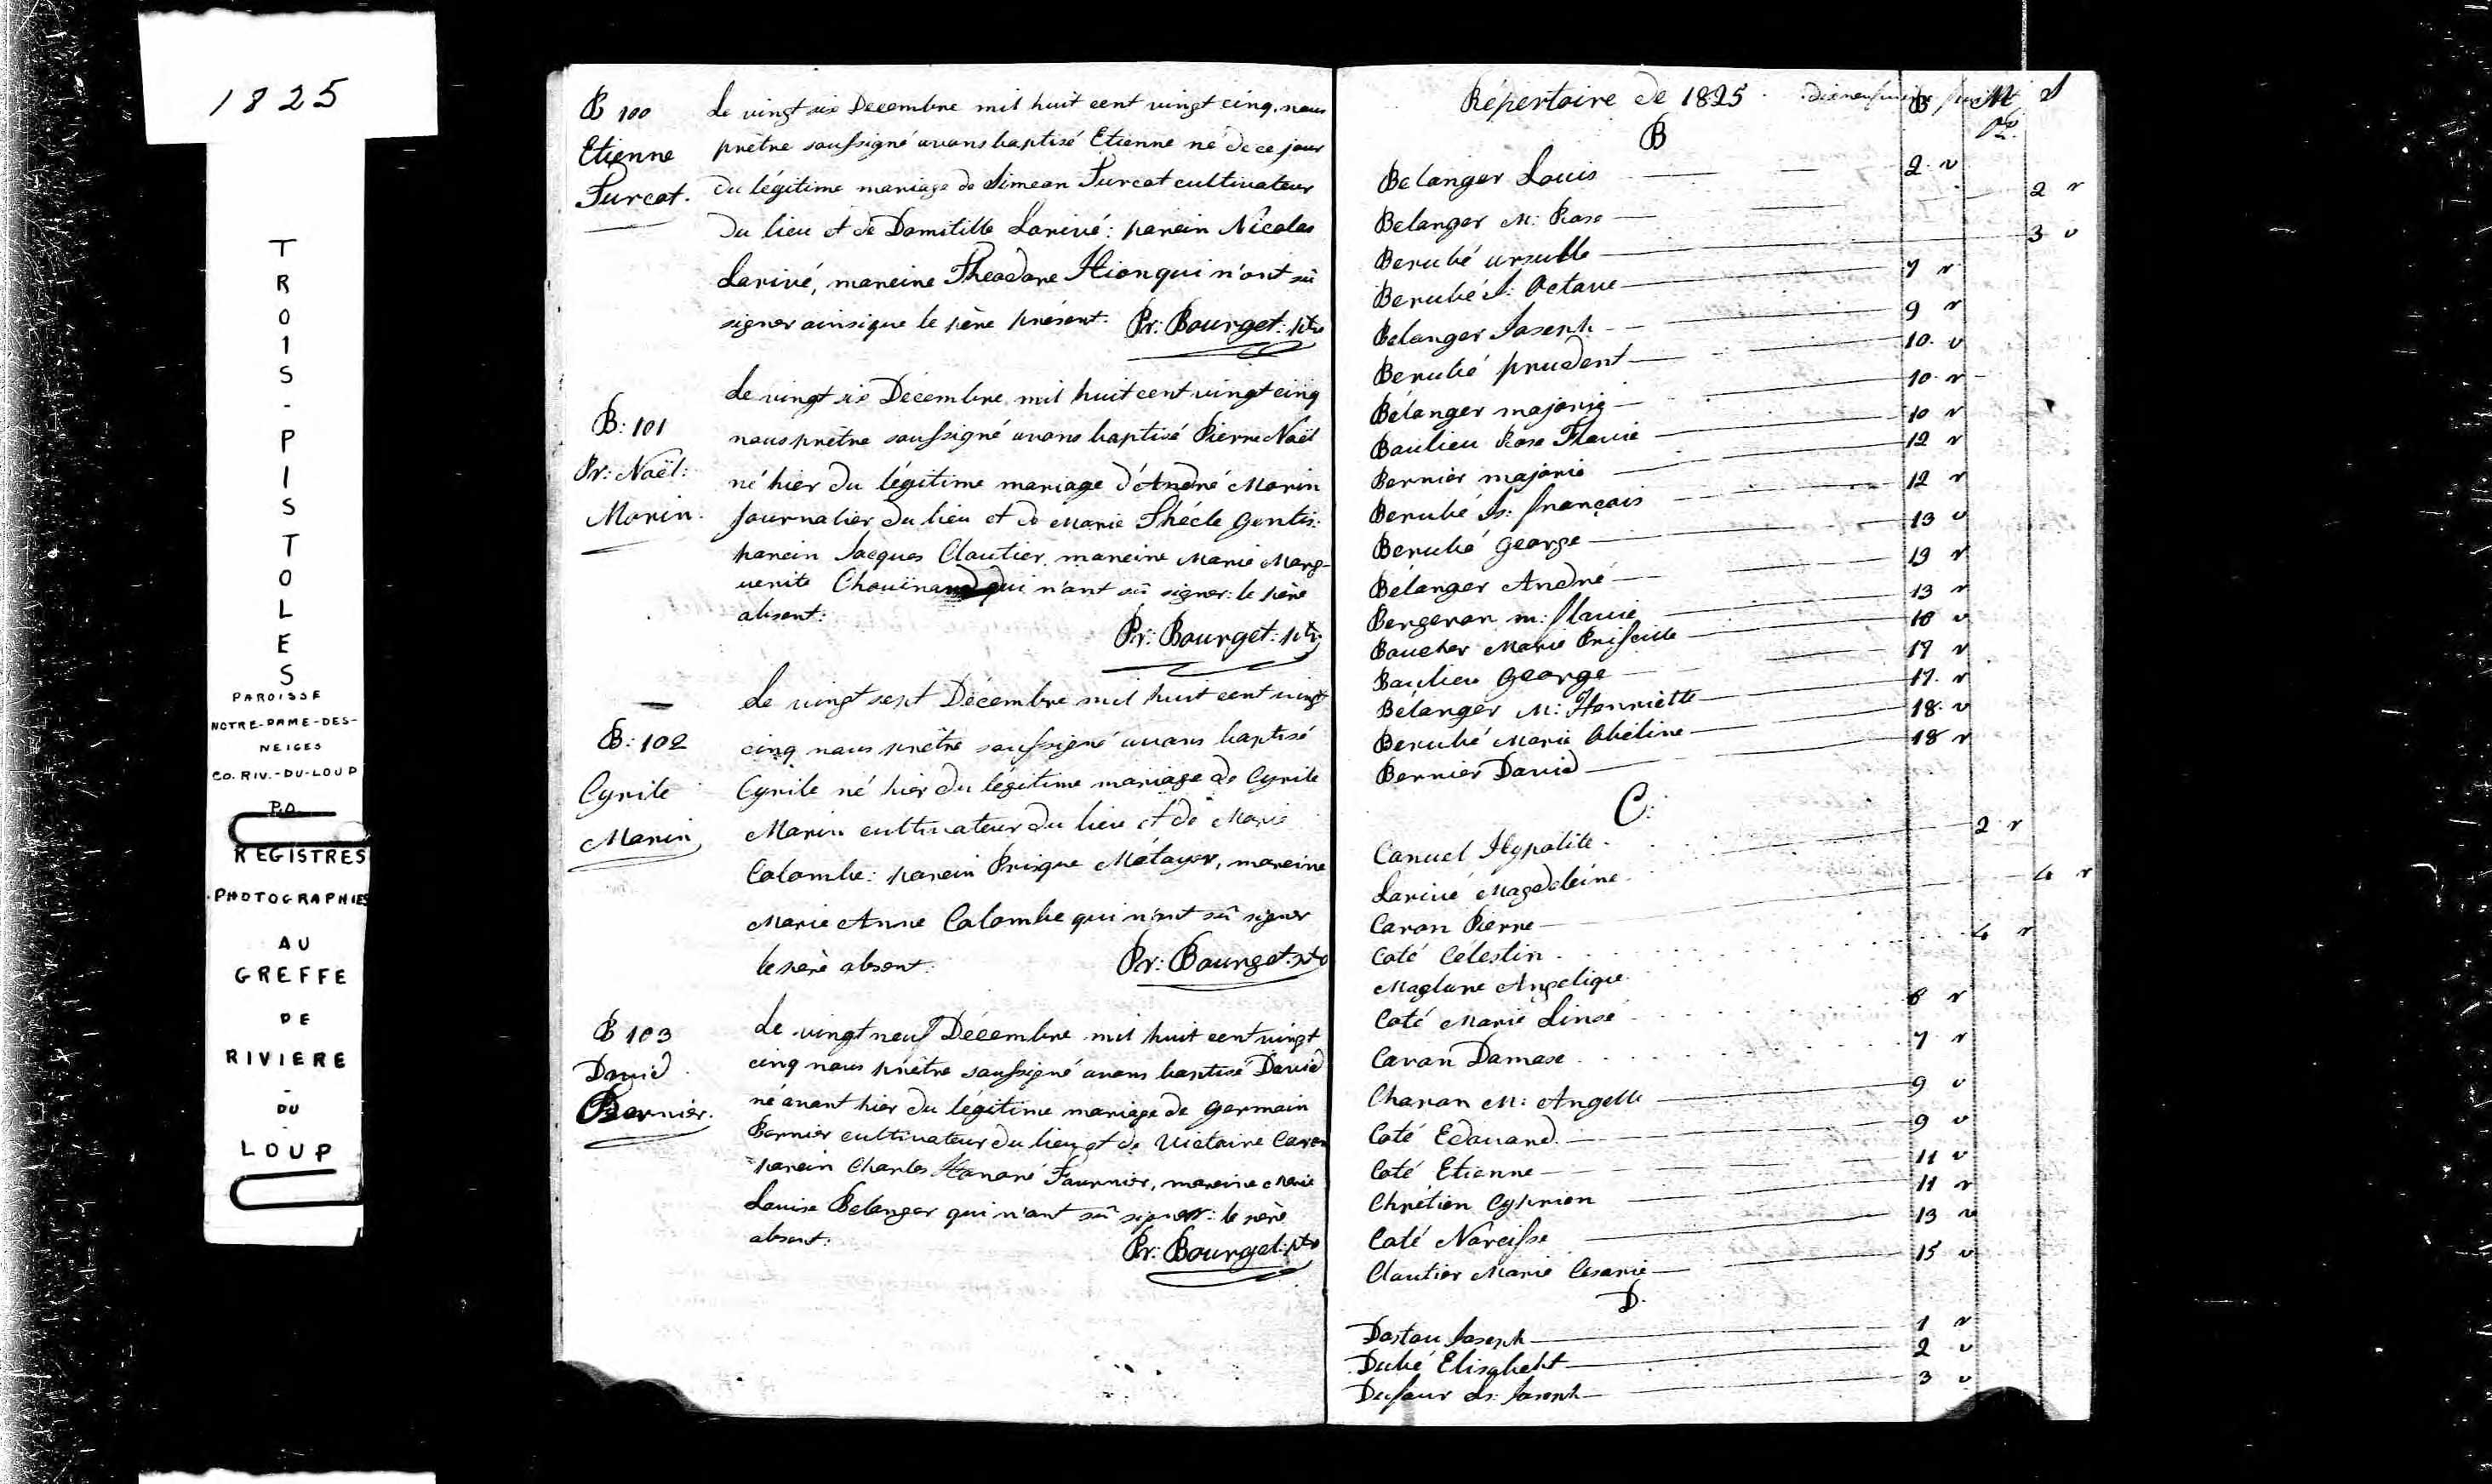 1825
TROIS-PISTOLES
PAROISSE
NOTRE-DAME-DES-
NEIGES
CO. RIV.-DU-LOUP
P.Q.
REGISTRES
PHOTOGRAPHIES
AU
GREFFE
DE
RIVIERE
-
DU
-
LOUP
B 100
Etienne
Turcot.
Le vingt six Decembre mil huit cent vingt cinq, nous
prêtre soussigné avons baptisé Etienne né de ce jour
du légitime mariage de Simean Turcot cultivateur
du lieu et de Domitille Larivé: parein Nicolas
Larivé, mareine Theodore Hion qui n'ont sû
signer ainsique le père présent. Pr: Bourget: ptre
B: 101
Pr: Noël:
Morin.
Le vingt six Décembre mil huit cent vingt cinq
nous prêtre soussigné avons baptisé Pierre Noël
né hier du légitime mariage d'André Morin
journalier du lieu et de Marie Thécle Gentis:
parein Jacques Cloutier, mareine Marie Marg-
uerite Chouinard qui n'ont sû signer: le père
absent:
Pr: Bourget: ptre
B: 102
Cyrile
Morin
Le vingt sept Décembre mil huit cent vingt
cinq nous prêtre soussigné avons baptisé
Cyrile né hier du légitime mariage de Cyrile
Morin cultivateur du lieu et de Marie
Colombe: parein Prisque Métayer, mareine
Marie Anne Colombe qui n'ont sû signer
le père absent. Pr: Bourget: ptre
B 103
David
Bernier.
Le vingt neuf Décembre mil huit cent vingt
cinq nous prêtre soussigné avons baptisé David
né avant hier du légitime mariage de Germain
Bernier cultivateur du lieu et de Victoire Caron
parein Charles Honoré Fournier, mareine Marie
Louise Belanger qui n'ont sû signer: le père
absent:
Pr: Bourget: ptre
Répertoire de 1825. B M S
B
Belanger Louis 2 v
Belanger M: Rose 2 r
Berubé ursulle 3 v
Berubé J: Octave 7 r
Belanger Joseph 9 r
Berubé prudent 10 v
Bélanger majorig 10 r
Baulieu Rose Flavie 10 r
Bernier majorie 12 r
Berubé Js: français 12 r
Berubé George 13 v
Bélanger André 13 r
Bergeron m: flavie 13 r
Boucher Marie Prisille 16 v
Baulieu George 17 r
Bélanger M: Henriette 17 r
Berubé Marie Obéline 18 v
Bernier David 18 r
C:
Canuel Hypolite 2 r
Larivé Magedeleine
Caron Pierre 4 r
Coté Célestin 4 r
Maglure Angelique
Coté Marie Linse 6 r
Caron Damase 7 r
Charon M: Angelle 9 v
Coté Edouard 9 v
Coté Etienne 11 v
Chrétien Cyprien 11 r
Coté Narcisse 13 v
Cloutier Marie Cesarie 15 v
D.
Dastou Joseph 1 r
Dubé Elisabeht 2 v
Dufour Ls: Joseph 3 v